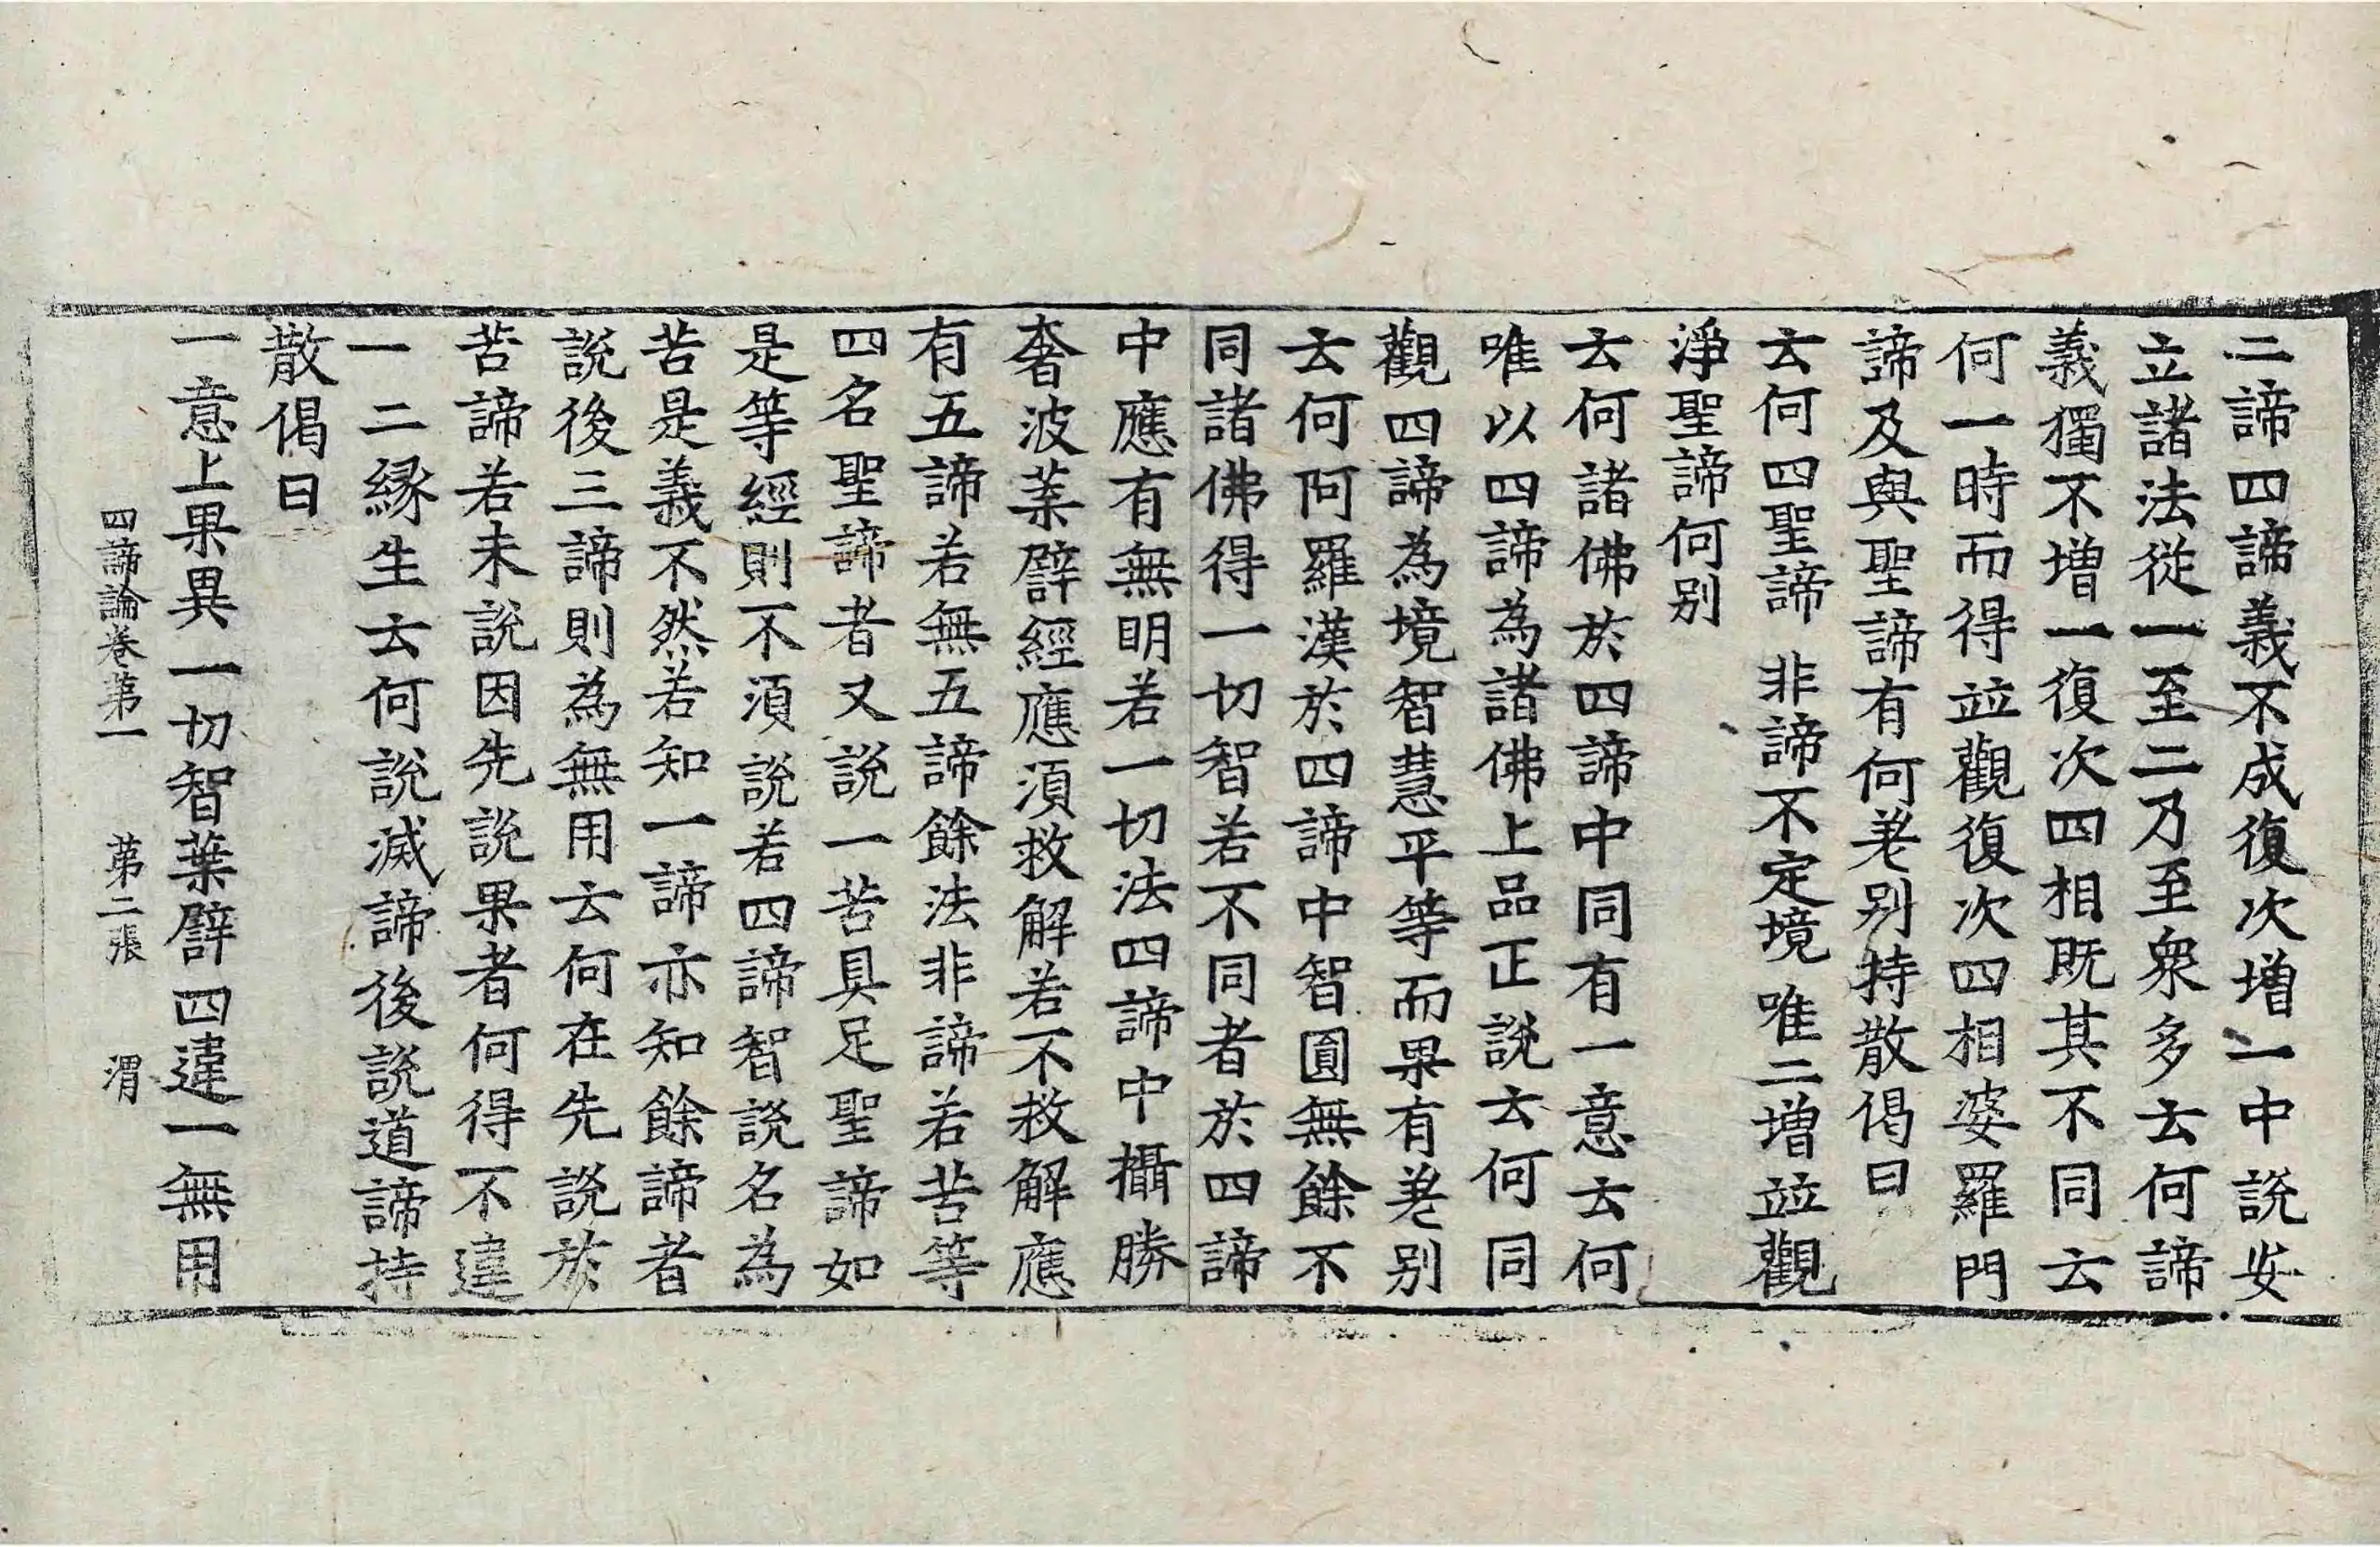 二諦四諦義不成復次增一中說安
立諸法從一至二乃至衆多云何諦
義獨不增一復次四相既其不同云
何一時而得並觀復次四相婆羅門
諦及與聖諦有何差別持散偈曰
云何四聖諦　非諦不定境　唯二增並觀
淨聖諦何別
云何諸佛於四諦中同有一意云何
唯以四諦為諸佛上品正說云何同
觀四諦為境智慧平等而果有差別
云何阿羅漢於四諦中智圓無餘不
同諸佛得一切智若不同者於四諦
中應有無明若一切法四諦中攝勝
奢波葉譬經應須救解若不救解應
有五諦若無五諦餘法非諦若苦等
四名聖諦者又說一苦具足聖諦如
是等經則不須說若四諦智說名為
苦是義不然若知一諦亦知餘諦者
說後三諦則為無用云何在先說於
苦諦若未說因先說果者何得不違
一二緣生云何說滅諦後說道諦持
散偈曰
一意上果異一切智葉譬四違一無用
四諦論卷第一　第二張　渭